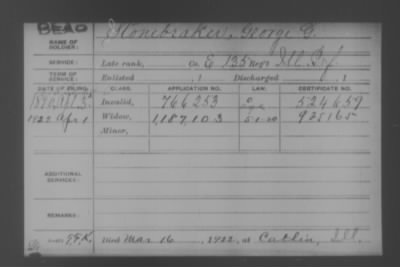 DEAD
NAME OF SOLDIER: Stonebraker, George
SERVICE: Late rank, Co. E 135 Reg't Ill. Inf.
TERM OF SERVICE: Enlisted , 1 Discharged , 1
DATE OF FILING. CLASS. APPLICATION NO. LAW. CERTIFICATE NO.
1890 Invalid, 766253 524659
1922 Apr 1 Widow, 1,187,103 925165
Minor,
ADDITIONAL SERVICES:
REMARKS:
Died Mar 16 , 1922, at Catlin, Ill.